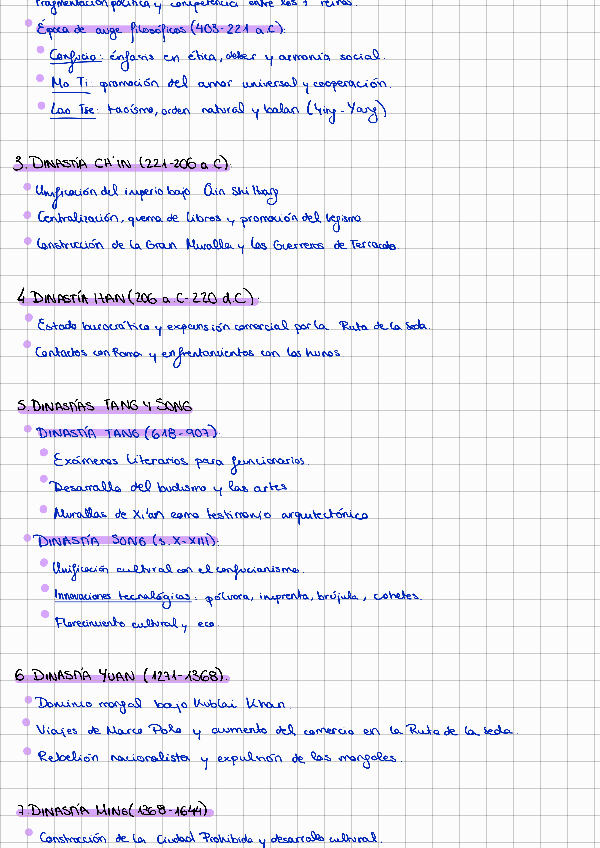 Fragmentación política y competencia entre los 7 reinos.
Época de auge filosóficos (403-221 a.C):
Confucio: énfasis en ética, deber y armonía social.
Mo Ti: promoción del amor universal y cooperación.
Lao Tse: taoísmo, orden natural y balan (Ying-Yang)
3. DINASTÍA CH'IN (221-206 a C):
Unificación del imperio bajo Qin Shi Huang
Centralización, quema de libros y promoción del legismo
Construcción de la Gran Muralla y los Guerreros de Terracota.
4 DINASTÍA HAN (206 a C-220 d.C):
Estado burocrático y expansión comercial por la Ruta de la Seda.
Contactos con Roma y enfrentamientos con los hunos
5. DINASTÍAS TANG Y SONG
DINASTÍA TANG (618-907):
Exámenes literarios para funcionarios.
Desarrollo del budismo y las artes
Murallas de Xi'an como testimonio arquitectónico
DINASTÍA SONG (s. X-XIII):
Unificación cultural con el confucianismo.
Innovaciones tecnológicas: pólvora, imprenta, brújula, cohetes.
Florecimiento cultural y eco.
6 DINASTÍA YUAN (1271-1368).
Dominio mongol bajo Kublai Khan.
Viajes de Marco Polo y aumento del comercio en la Ruta de la Seda.
Rebelión nacionalista y expulsión de los mongoles.
7 DINASTÍA MING (1368-1644)
Construcción de la Ciudad Prohibida y desarrollo cultural.